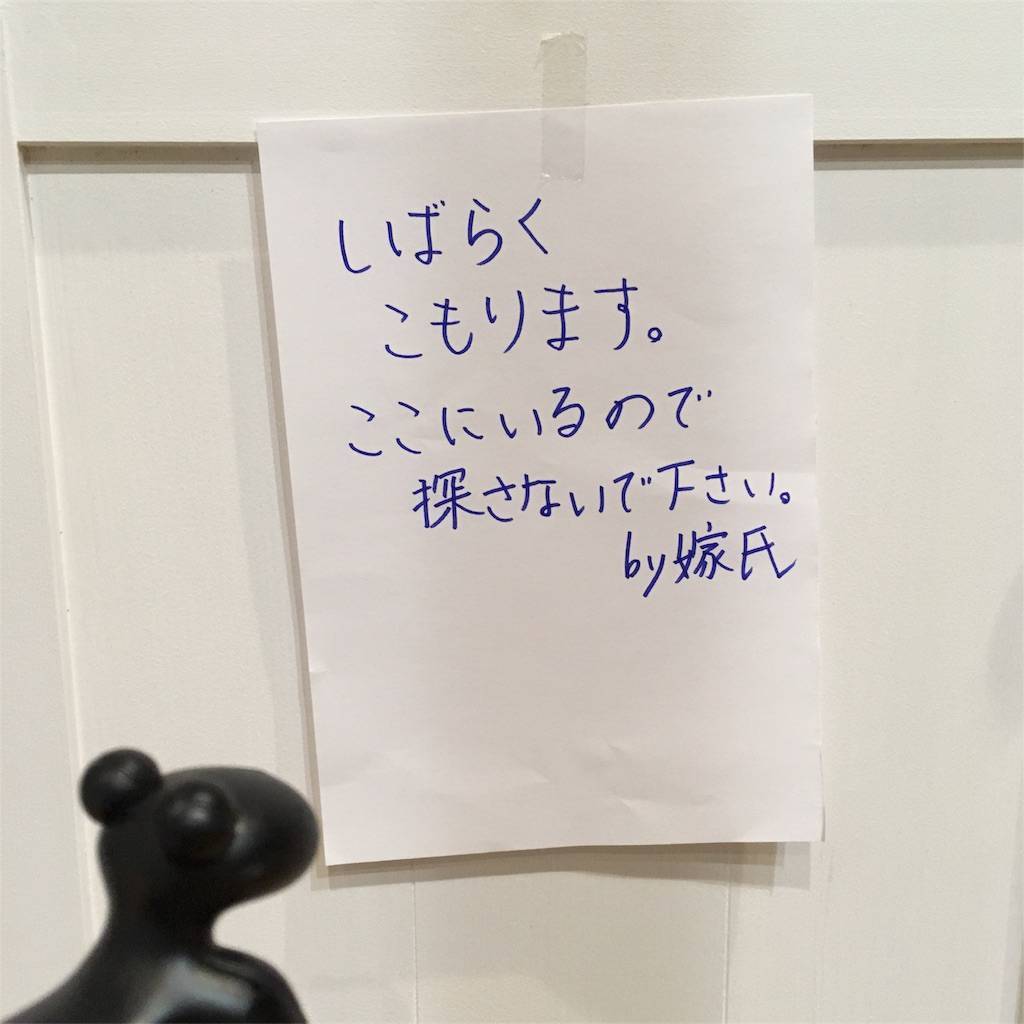 しばらく
こもります。
ここにいるので
探さないで下さい。
by嫁氏